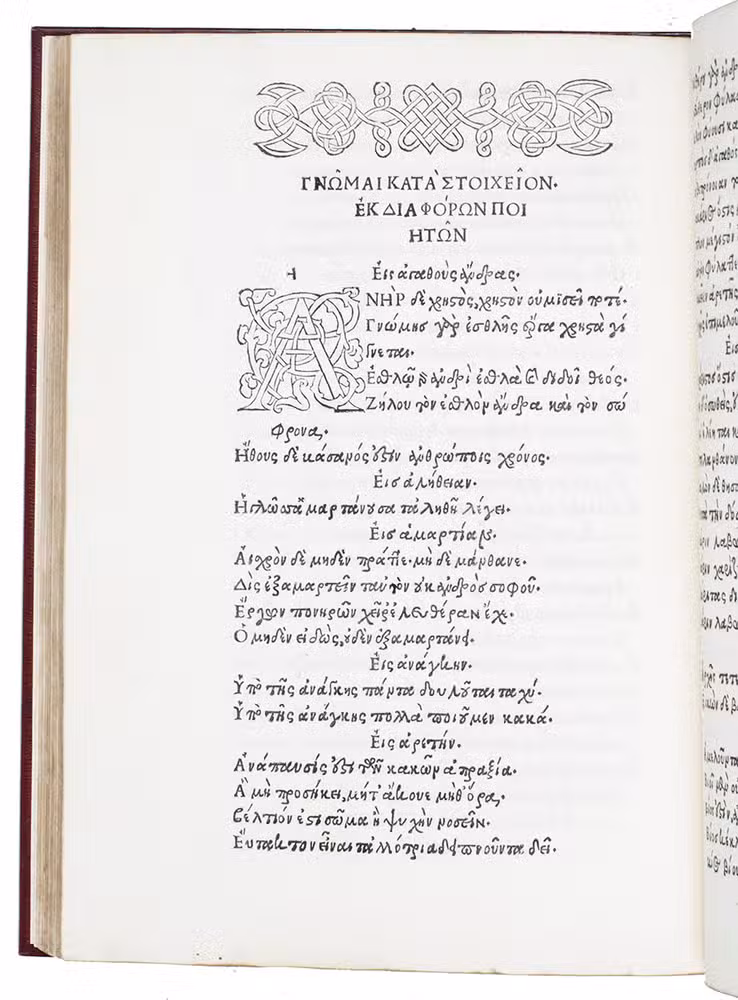 ΓΝΩ͂ΜΑΙ ΚΑΤᾺ ΣΤΟΙΧΕΙ͂ΟΝ.
ἘΚ ΔΙΑΦΌΡΩΝ ΠΟΙ
ΗΤΩ͂Ν
Εἰς ἀγαθοὺς ἄνδρας.
ΑΝῊΡ δὲ χρηστὸς, χρηστὸν οὐ μισεῖ ποτέ.
Γνώμης γὰρ ἐσθλῆς ἔργα χρηστὰ γί
γνεται.
Ἐσθλῷ ἀνδρὶ ἐσθλὰ καὶ διδοῖ θεός.
Ζήλου τὸν ἐσθλὸν ἄνδρα καὶ τὸν σώ
φρονα.
Ἤθους δὲ βάσανός ἐστιν ἀνθρώποις χρόνος.
Εἰς ἀλήθειαν.
Ἡ γλῶσσ' ἁμαρτάνουσα τἀληθῆ λέγει.
Εἰς ἁμαρτίαν.
Αἰσχρὸν δὲ μηδὲν πράττε. μὴ δὲ μάνθανε.
Δὶς ἐξαμαρτεῖν ταὐτὸν οὐκ ἀνδρὸς σοφοῦ.
Ἔργων πονηρῶν χεῖρ' ἐλευθέραν ἔχε.
Ὁ μηδὲν εἰδὼς, οὐδὲν ἐξαμαρτάνει.
Εἰς ἀνάγκην.
Ὑπὸ τῆς ἀνάγκης πάντα δουλοῦται ταχύ.
Ὑπὸ τῆς ἀνάγκης πολλὰ ποιοῦμεν κακά.
Εἰς ἀρετήν.
Ἀνάπαυσίς ἐστι τῶν κακῶν ἀπραξία.
Ἃ μὴ προσήκει, μήτ' ἄκουε μήθ' ὅρα.
Βέλτιόν ἐστι σῶμα ἢ ψυχὴν νοσεῖν.
Εὔτακτον εἶναι τἀλλότρια δειπνοῦντα δεῖ.